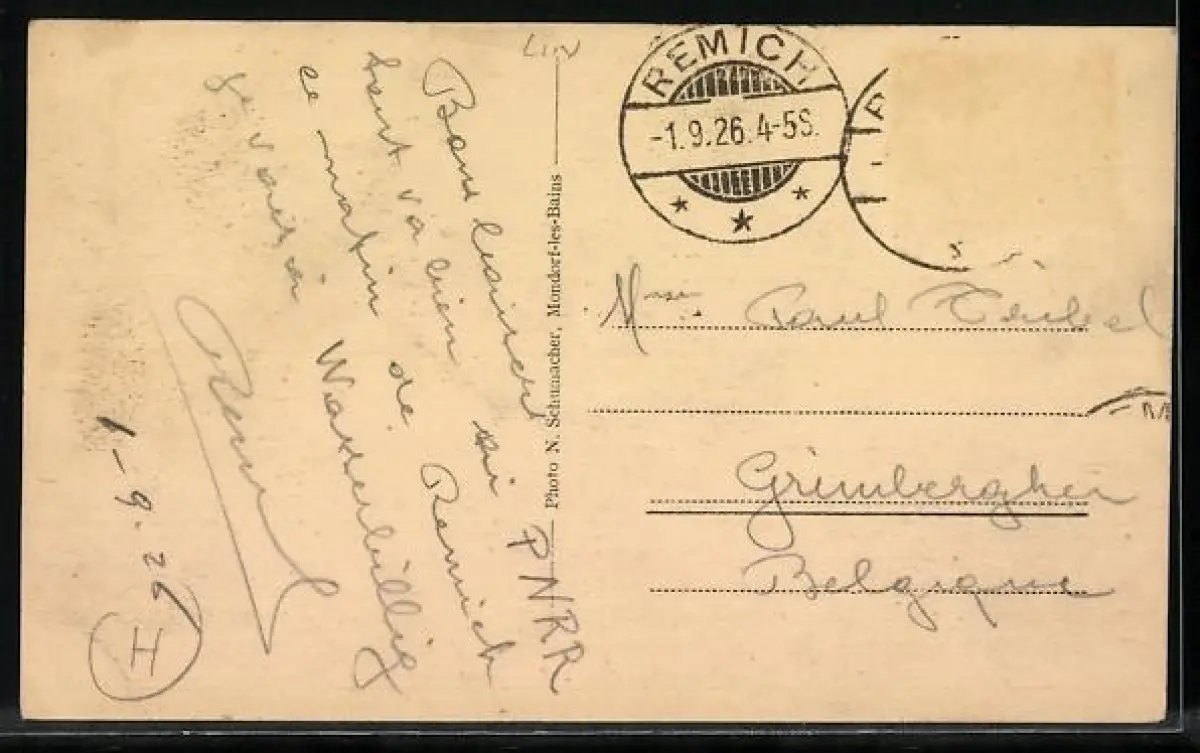 LUV
Bons baisers
tout va bien ici PNRR
ce matin de Remich
je vais à Wasserbillig
1-9.26
I
Photo N. Schumacher, Mondorf-les-Bains
REMICH
-1.9.26.4-5S.
Paul
Grimberghen
Belgique